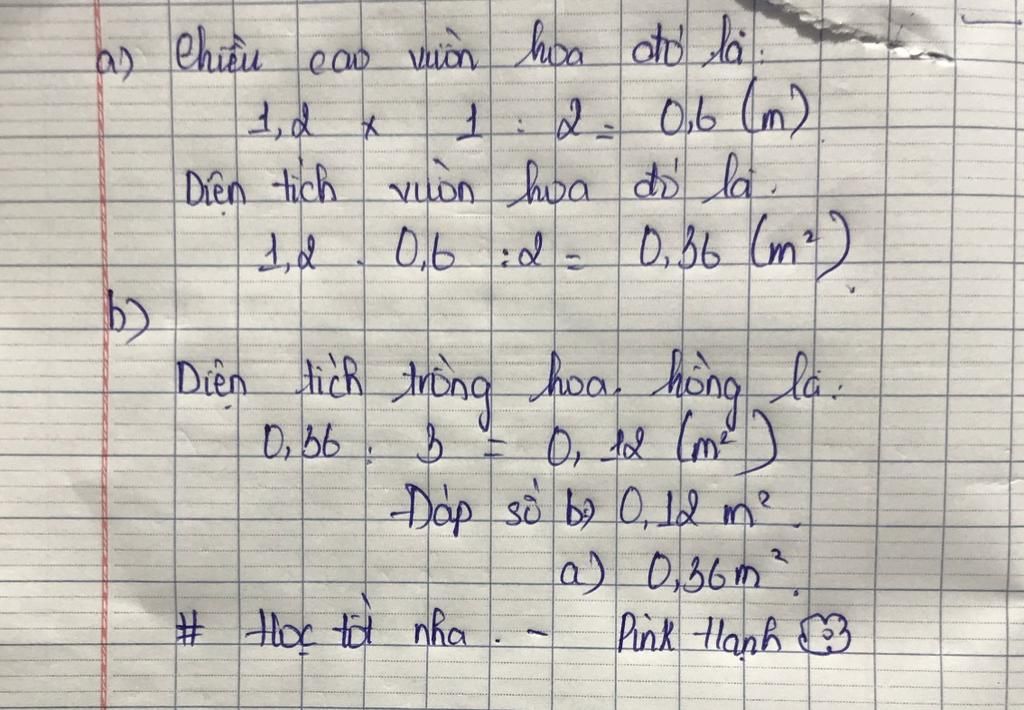 a) Chiều cao vườn hoa đó là:
1,2 x 1 : 2 = 0,6 (m)
Diện tích vườn hoa đó là.
1,2 . 0,6 : 2 = 0,36 (m²)
b)
Diện tích trồng hoa hồng là:
0,36 : 3 = 0,12 (m²)
Đáp số b) 0,12 m².
a) 0,36m².
# Học tốt nha. - Pink Hạnh